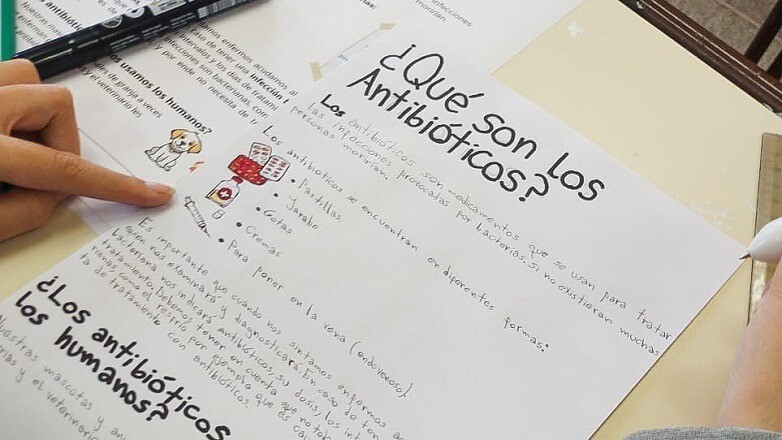 infecciones
morirían.
antibióti
nuestras mas
enferman
mos enfermos acudamos al
caso de tener una infección b
intervalos y los días de tratami
infecciones son bacterianas, com
y por ende no necesita de tr
os usamos los humanos?
ales de granja a veces
y el veterinario les
¿Qué son los
Antibióticos?
Los antibióticos son medicamentos que se usan para tratar
las infecciones provocatas por bacterias. Si no existieran muchas
personas morirían.
Los antibióticos se encuentran en diferentes formas:
• Pastillas
• Jarabe
• Gotas
• Cremas
• Para poner en la vena (endovenoso)
Es importante que cuando nos sintamos enfermos ac
quien nos examinará y diagnosticará. En caso de ten
bacteriana nos indicará antibióticos, su dosis, los int
tratamiento. Debemos tener en cuenta que no tod
rianas como el resfrío por ejemplo que es ca
ta de tratamiento con antibióticos.
¿Los antibióticos
los humanos?
Nuestras mascotas y an
rias y el veterinario